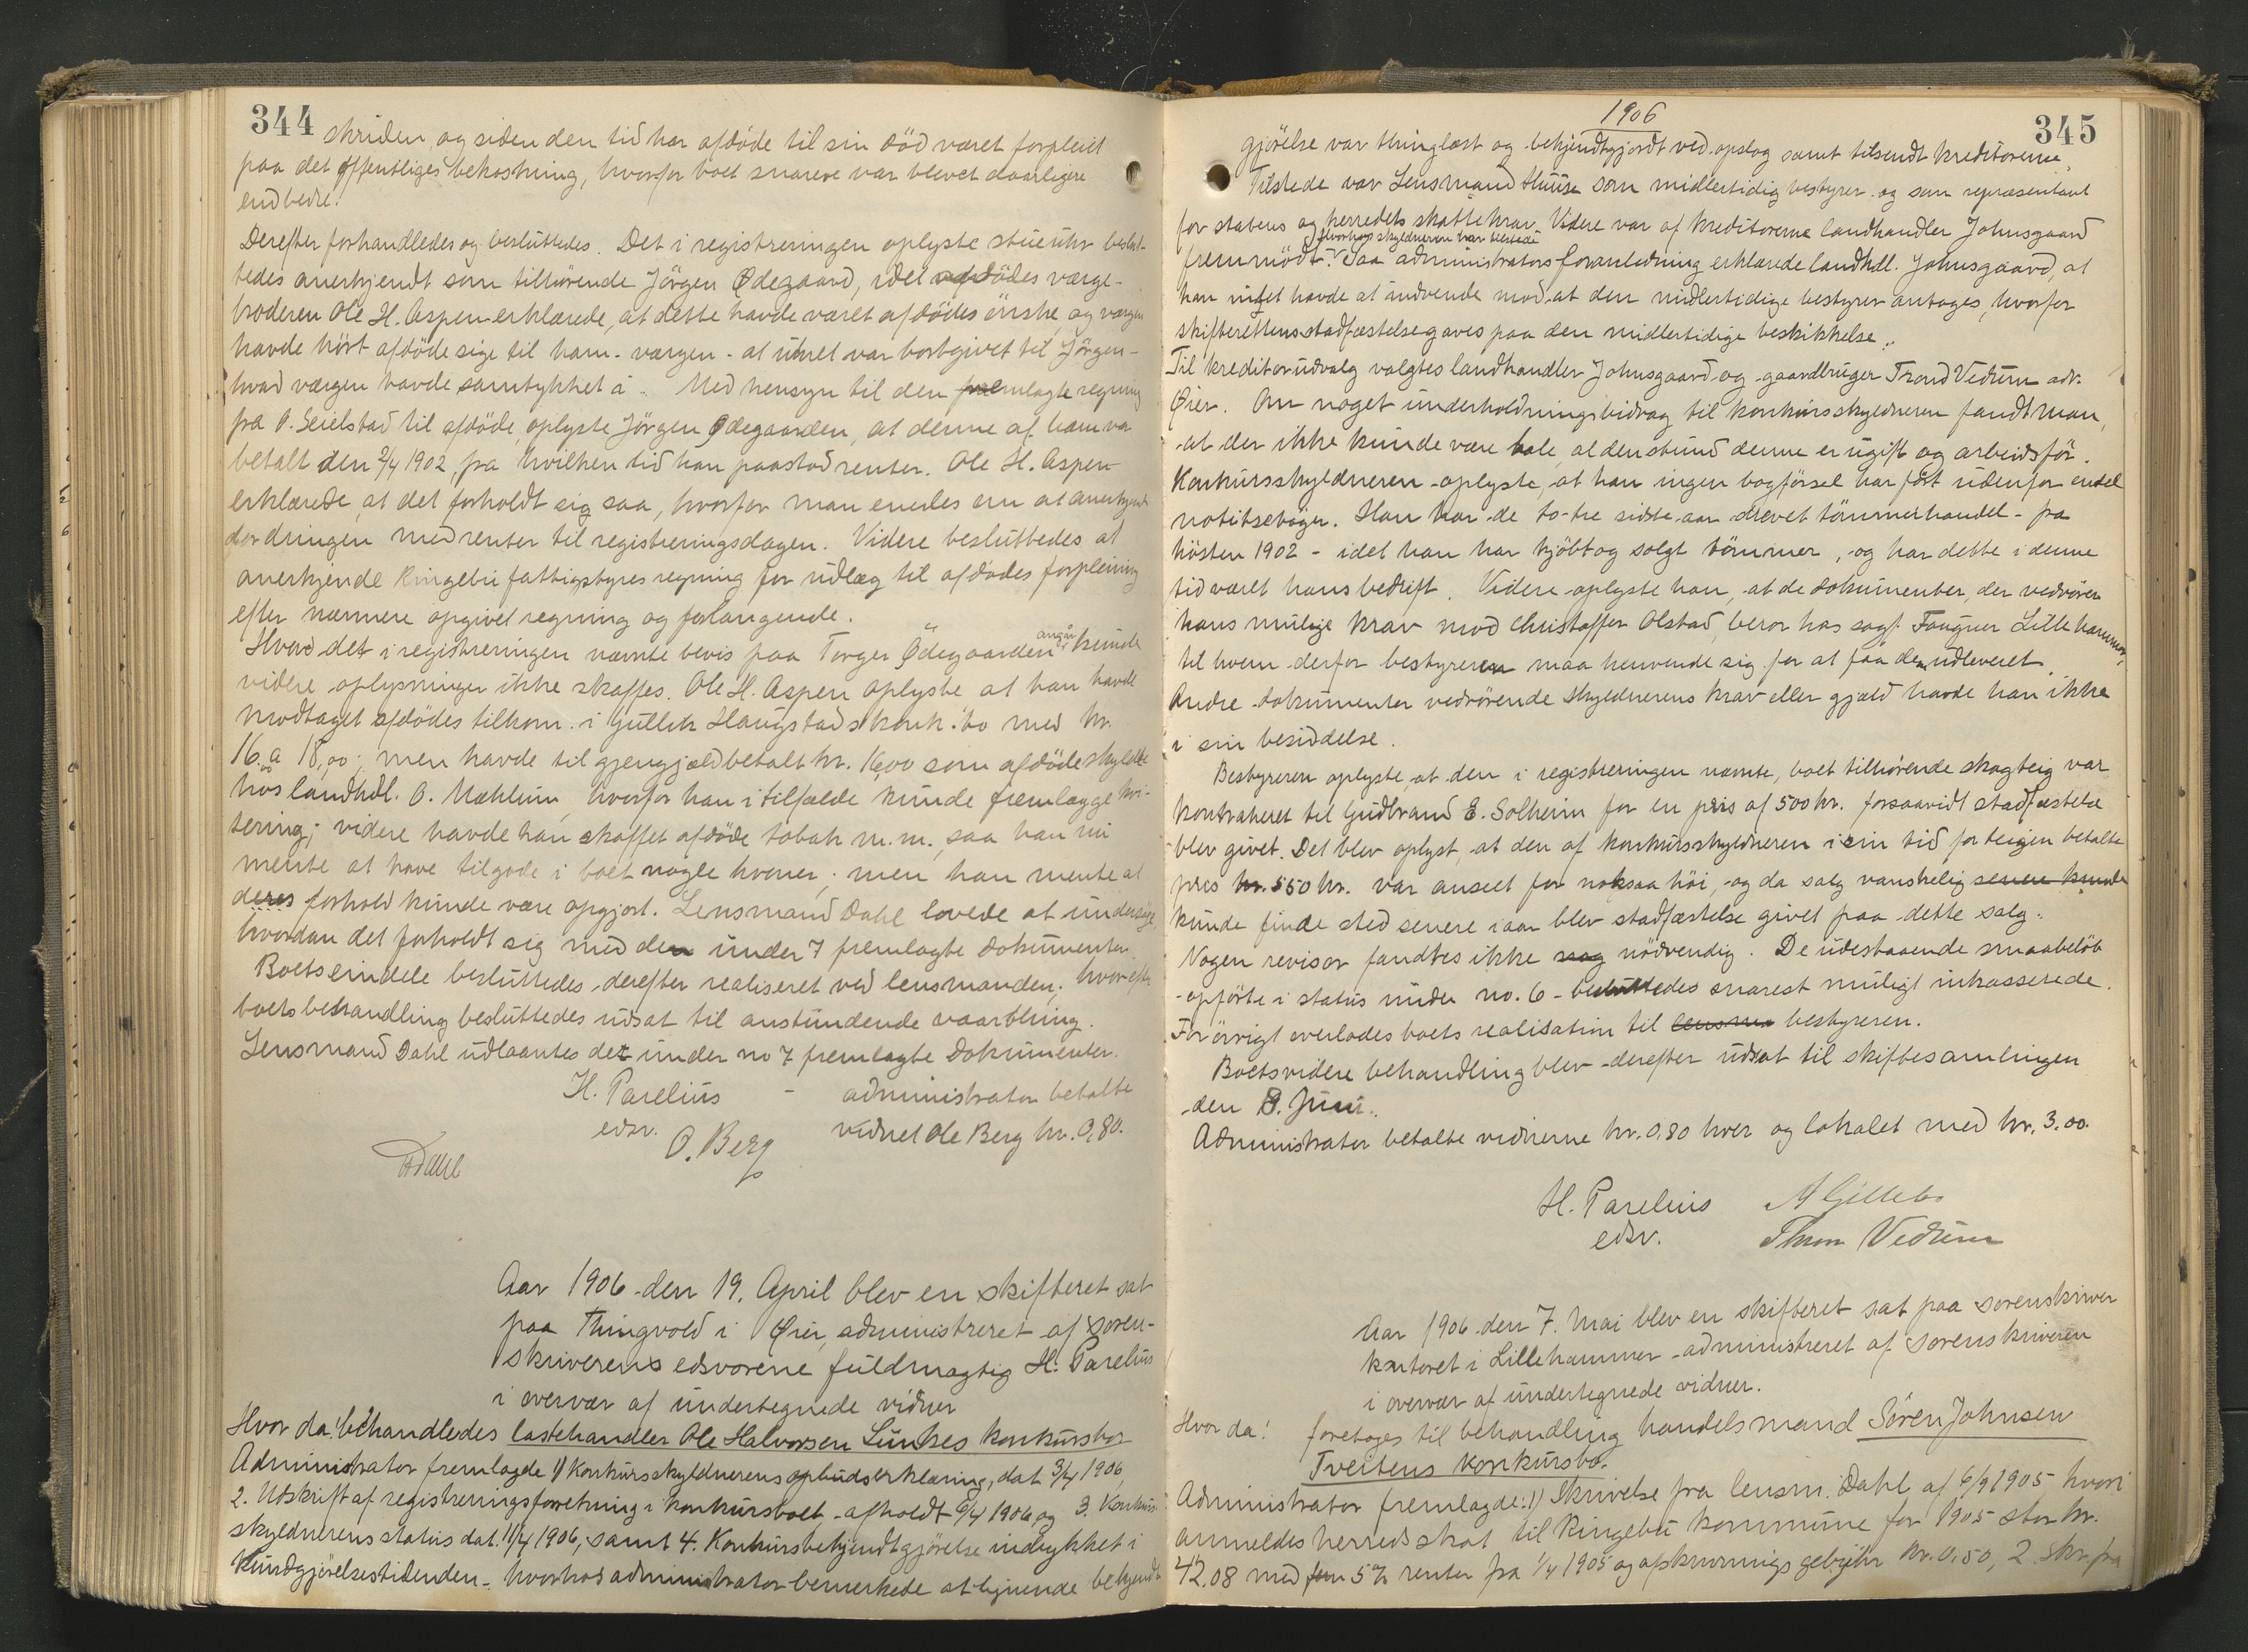 344
skriden, og siden den tid har afdöde til sin död været forpleiet
paa det offentliges bekostning, hvorfor boet snarere var blevet daarligere
end bedre.
Derefter forhandledes og besluttedes. Det i registreringen oplyste stueuhr beslut-
tedes anerkjendt som tilhörende Jörgen Ödegaard, idet afdödes værge-
broderen Ole H. Aspen erklærede, at dette havde været afdödes önske, og værgen
havde hört afdöde sige til ham - værgen - at uhret var bortgivet til Jörgen -
hvad værgen havde samtykket i. Med hensyn til den fremlagte regning
fra P. Seielstad til afdöde oplyste Jörgen Ödegaarden, at denne af ham var
betalt den 2/4 1902, fra hvilken tid han paastod renter. Ole H. Aspen
erklærede, at det forholdt sig saa, hvorfor man enedes om at anerkjende
fordringen med renter til registreringsdagen. Videre besluttedes at
anerkjende Ringebu fattigstyres regning for udlæg til afdödes forpleining
efter nærmere opgivet regning og forlangende.
Hvad det i registreringen nævnte bevis paa Torger Ödegaarden angår kunde
videre oplysninger ikke skaffes. Ole H. Aspen oplyste at han havde
modtaget afdödes tilkom. i Gullik Haugstads konk.bo med kr.
16 à 18,00; men havde til gjengjæld betalt kr. 16,00 som afdöde skyldte
hos landhdl. O. Mæhlum, hvorfor han i tilfælde kunde fremlægge kvi-
tering; videre havde han skaffet afdöde tobak m.m., saa han nu
mente at have tilgode i boet nogle kroner; men han mente at
deres forhold kunde være opgjort. Lensmand Dahl lovede at undersöge
hvordan det forholdt sig med den under 7 fremlagte dokumenter.
Boets eiendele besluttedes derefter realiseret ved lensmanden, hvorefter
boets behandling besluttedes udsat til anstundende vaarthing.
Lensmand Dahl udlaantes det under no 7 fremlagte dokumenter.
H. Parelius - administrator betalte
edsv. O. Berg vidnet Ole Berg kr. 0,80.
Dahl
Aar 1906 den 19. April blev en skifteret sat
paa Thingvold i Öier, administreret af soren-
skriverens edsvorene fuldmægtig H. Parelius
i overvær af undertegnede vidner
Hvor da! behandledes lastehandler Ole Halvorsen Lunkes konkursbo
Administrator fremlagde 1) Konkursskyldnerens opbudserklæring, dat. 3/4 1906,
2. Udskrift af registreringsforretning i konkursboet, afholdt 9/4 1906, og 3. Konkurs-
skyldnerens status dat. 11/4 1906, samt 4. Konkursbekjendtgjörelse indrykket i
Kundgjörelsestidenden - hvorhos administrator bemerkede at lignende bekjendt-
1906
345
gjörelse var thinglæst og bekjendtgjordt ved opslag samt tilsendt kreditorerne
Tilstede var Lensmand Huuse som midlertidig bestyrer og som repræsentant
for statens og herredets skattekrav. Videre var af kreditorerne landhandler Johnsgaard
hvorhos skyldneren var tilstede
fremmödt. Paa administrators foranledning erklærede landhdl. Johnsgaard, at
han intet havde at indvende mod, at den midlertidige bestyrer antages, hvorfor
skifterettens stadfæstelse gaves paa den midlertidige beskikkelse.
Til kreditorudvalg valgtes landhandler Johnsgaard og gaardbruger Trond Vedum adr.
Öier. Om noget underholdningsbidrag til konkursskyldneren fandt man,
at der ikke kunde være tale, aldenstund denne er ugift og arbeidsför.
Konkursskyldneren oplyste, at han ingen bogförsel har fört udenfor endel
notitsebøger. Han har de to-tre sidste aar drevet tömmerhandel - fra
hösten 1902 - idet han har kjöbt og solgt tömmer, og har dette i denne
tid været hans bedrift. Videre oplyste han, at de dokumenter, der vedrörer
hans mulige krav mod Christoffer Olstad, beror hos sagf. Faugner Lillehammer,
til hvem derfor bestyreren maa henvende sig for at faa dem udleveret.
Andre dokumenter vedrörende skyldnerens krav eller gjæld havde han ikke
i sin besiddelse.
Bestyreren oplyste, at den i registreringen nævnte, boet tilhörende skogteig var
kontraheret til Gudbrand E. Solheim for en pris af 500 kr. forsaavidt stadfæstelse
blev givet. Det blev oplyst, at den af konkursskyldneren i sin tid for teigen betalte
pris kr. 550 kr. var anseet for noksaa höi, og da salg vanskelig senere kunde
kunde finde sted senere i aar blev stadfæstelse givet paa dette salg.
Nogen revisor fandtes ikke nog nödvendig. De udestaaende smaabelöb
- opförte i status under no. 6 - besluttedes snarest muligt inkasserede.
Forövrigt overlodes boets realisation til lensma bestyreren.
Boets videre behandling blev derefter udsat til skiftesamlingen
den 8. Juni.
Administrator betalte vidnerne kr. 0,80 hver og lokalet med kr. 3.00.
H. Parelius A Gillebo
edsv. Thron Vedum
Aar 1906 den 7. Mai blev en skifteret sat paa sorenskriver
kontoret i Lillehammer administreret af sorenskriveren
i overvær af undertegnede vidner.
Hvor da! foretoges til behandling handelsmand Sören Johnsen
Tveitens konkursbo.
Administrator fremlagde: 1) Skrivelse fra lensm. Dahl af 6/9 1905 hvori
anmeldes herredsskat til Ringebu kommune for 1905 stor kr.
42.08 med fem 5% renter fra 1/4 1905 og afskrivningsgebyhr kr. 0,50, 2. Skr. fra